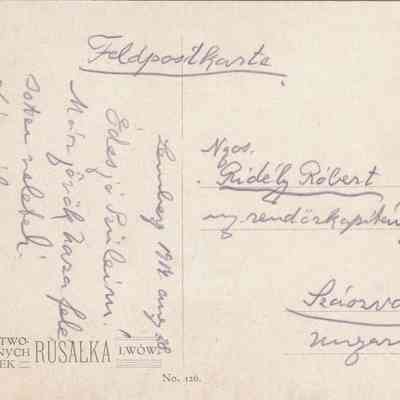 Feldpostkarte
Lemberg 1914 aug 28
Édes jó Szüleim!
Már jövök haza fele
Ngos.
Ridély Róbert
ny. rendőrkapitány
Szászvá
TWO
NYCH
EK
RUSAŁKA
LWÓW
No. 126.